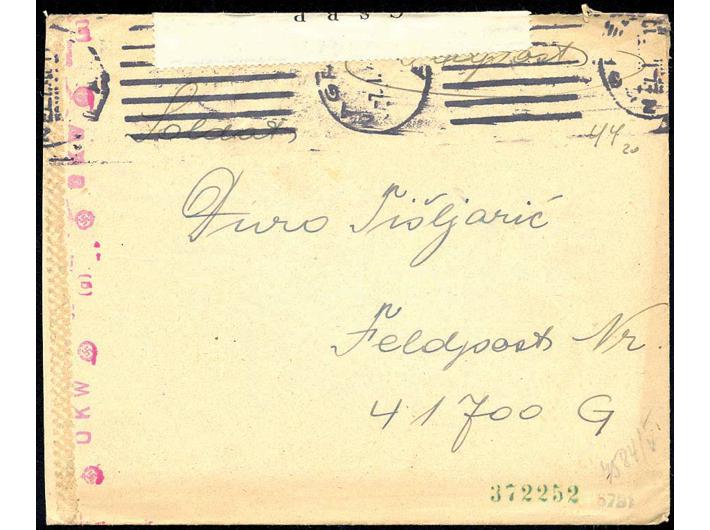 C S R P
Feldpost
Soldat
44
20
Đuro Tišljarić
Feldpost Nr.
41700 G
372252
OKW
(g)
OKW